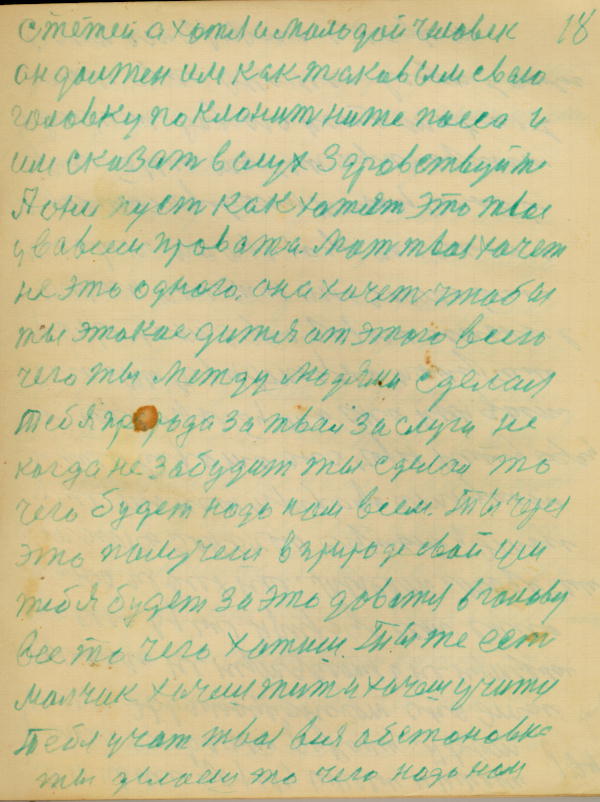 18
с тетей а хотя и молодой человек
он должен им как таковым свою
головку поклонит ниже пояса и
им сказат вслух здравствуйте
А они пуст как хотят это твое
мат твоя хочет
не это одного, она хочет чтобы
ты этакое дитя от этого всего
чего ты между людями сделал
тебя природа за твои заслуги не
когда не забудит ты сделал то
чего будет надо нам всем. Ты через
это получеш в природе свой ум
тебя будет за это даватся в голову
все то чего хотиш. Ты же ест
малчик хочеш жит и хочеш учится
Тебя учат твоя вся обстановка
ты делаеш то чего надо нам